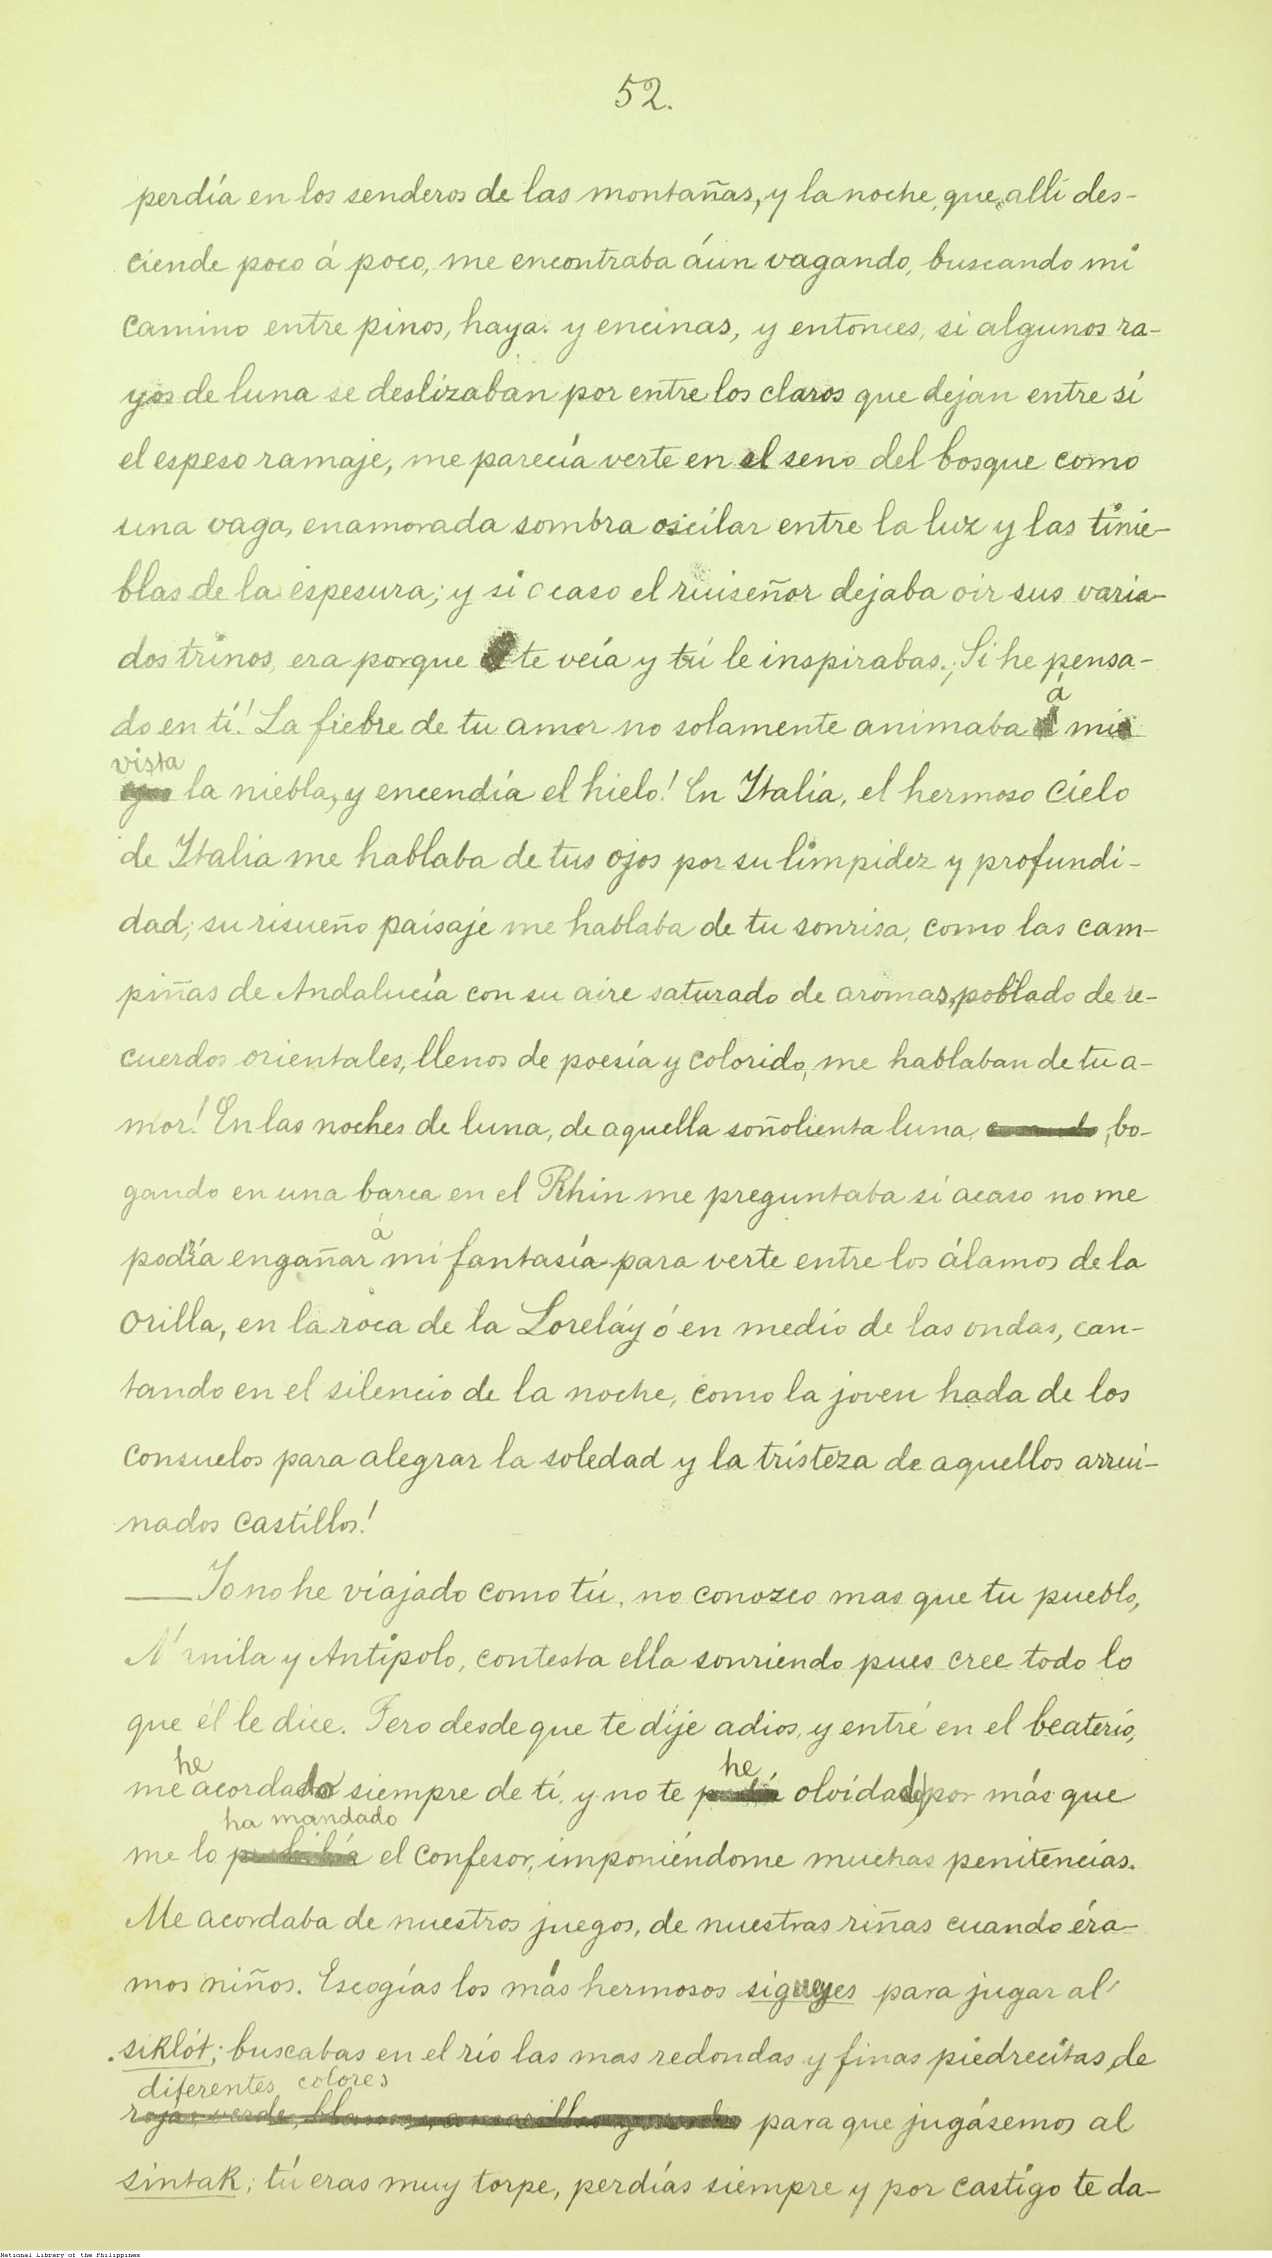 52.
perdía en los senderos de las montañas, y la noche, que allí des-
ciende poco á poco, me encontraba áun vagando, buscando mi
camino entre pinos, haya. y encinas, y entonces, si algunos ra-
yos de luna se deslizaban por entre los claros que dejan entre sí
el espeso ramaje, me parecía verte en el seno del bosque como
una vaga, enamorada sombra oscilar entre la luz y las tinie-
blas de la espesura; y si acaso el ruiseñor dejaba oir sus varia-
dos trinos, era porque te veía y tú le inspirabas. ¡Si he pensa-
do en tí! La fiebre de tu amor no solamente animaba á mi
vista
la niebla, y encendía el hielo! En Italia, el hermoso cielo
de Italia me hablaba de tus ojos por su limpidez y profundi-
dad; su risueño paisaje me hablaba de tu sonrisa, como las cam-
piñas de Andalucía con su aire saturado de aromas, poblado de re-
cuerdos orientales, llenos de poesía y colorido, me hablaban de tu a-
mor! En las noches de luna, de aquella soñolienta luna, bo-
gando en una barca en el Rhin me preguntaba si acaso no me
podría engañar á mi fantasía para verte entre los álamos de la
orilla, en la roca de la Loreláy ó en medio de las ondas, can-
tando en el silencio de la noche, como la joven hada de los
consuelos para alegrar la soledad y la tristeza de aquellos arrui-
nados castillos!
— Yo no he viajado como tú, no conozco mas que tu pueblo,
Manila y Antipolo, contesta ella sonriendo pues cree todo lo
que él le dice. Pero desde que te dije adios, y entré en el beaterio,
me he acordado siempre de tí, y no te he olvidado por más que
ha mandado
me lo el confesor, imponiéndome muchas penitencias.
Me acordaba de nuestros juegos, de nuestras riñas cuando éra-
mos niños. Escogías los más hermosos sigueyes para jugar al
siklót; buscabas en el río las mas redondas y finas piedrecitas, de
diferentes colores
para que jugásemos al
sintak; tú eras muy torpe, perdías siempre y por castigo te da-
National Library of the Philippines